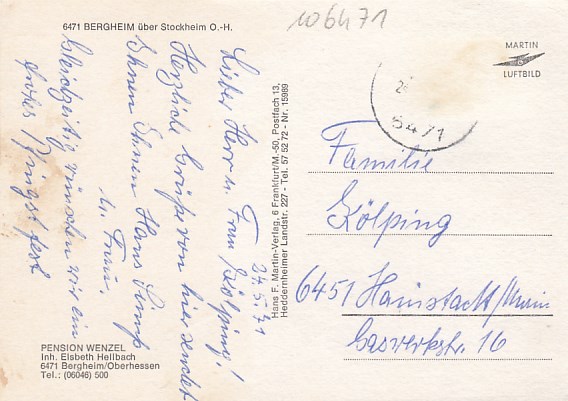 106471
6471 BERGHEIM über Stockheim O.-H.
MARTIN
LUFTBILD
6471
27.5.71
Lieber Herr u. Frau Kölping!
Herzliche Grüße von hier sendet
Ihnen Ihnen Hans
u. Frau.
Gleichzeitig wünschen wir ein
frohes Pfingstfest
Familie
Kölping
6451 Hainstadt/Main
Gaswerkstr. 16
Hans F. Martin-Verlag, 6 Frankfurt/M.-50, Postfach 13,
Heddernheimer Landstr. 227 - Tel. 57 52 72 - Nr. 15989
PENSION WENZEL
Inh. Elsbeth Heilbach
6471 Bergheim/Oberhessen
Tel.: (06046) 500